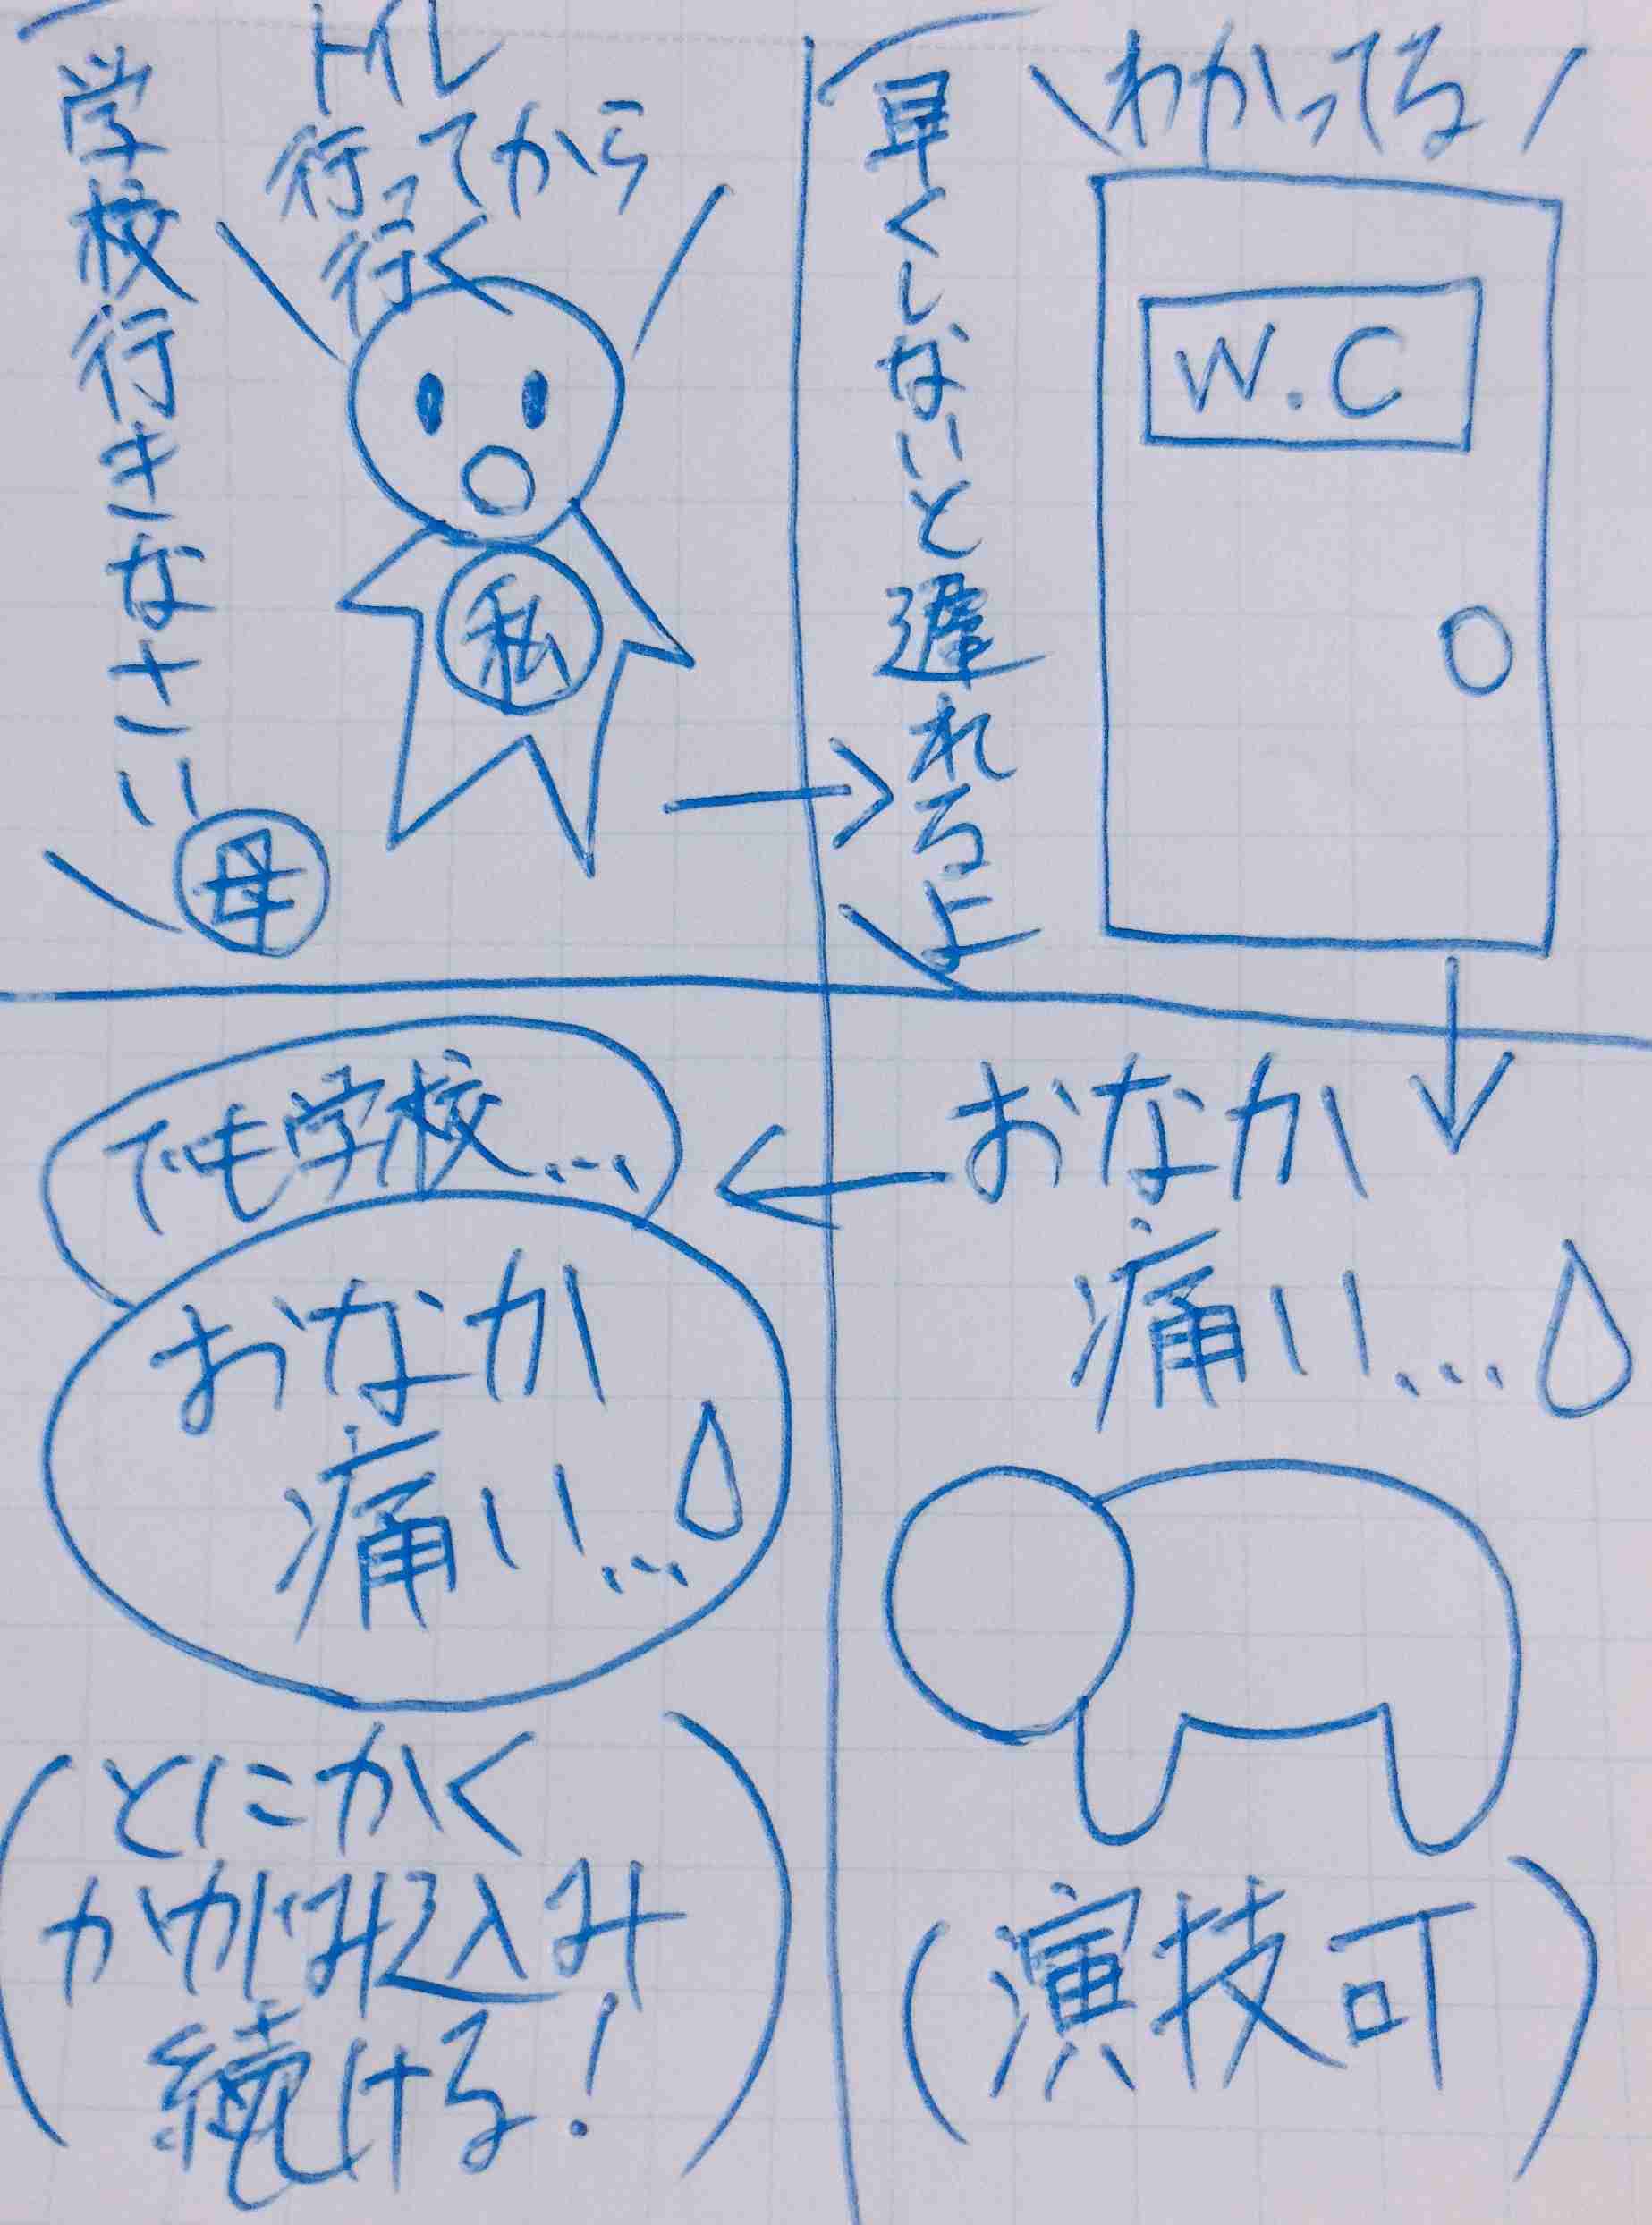 学校行きなさい
母
トイレ
行ってから
行く
私
早くしないと遅れるよ
わかってる
W.C
おなか
痛い…
(演技可)
でも学校…
おなか
痛い…
(とにかく
かがみ込み
続ける!)